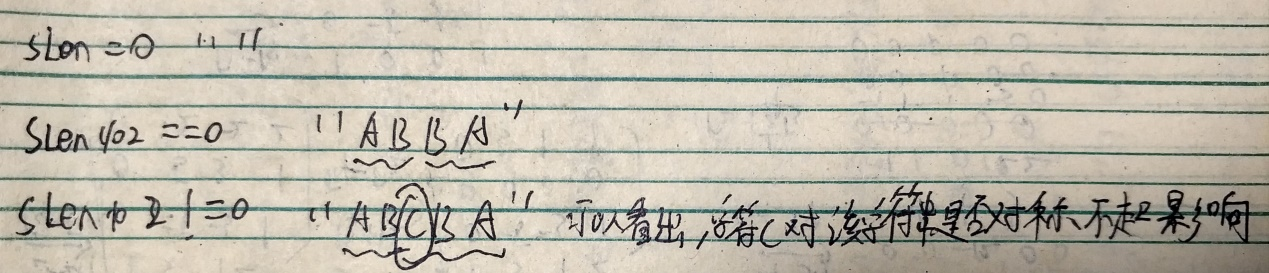 sLen = 0 " "
sLen % 2 == 0 "ABBA"
sLen % 2 != 0 "ABCBA" 可以看出,字符C对该字符串是否对称、不起影响